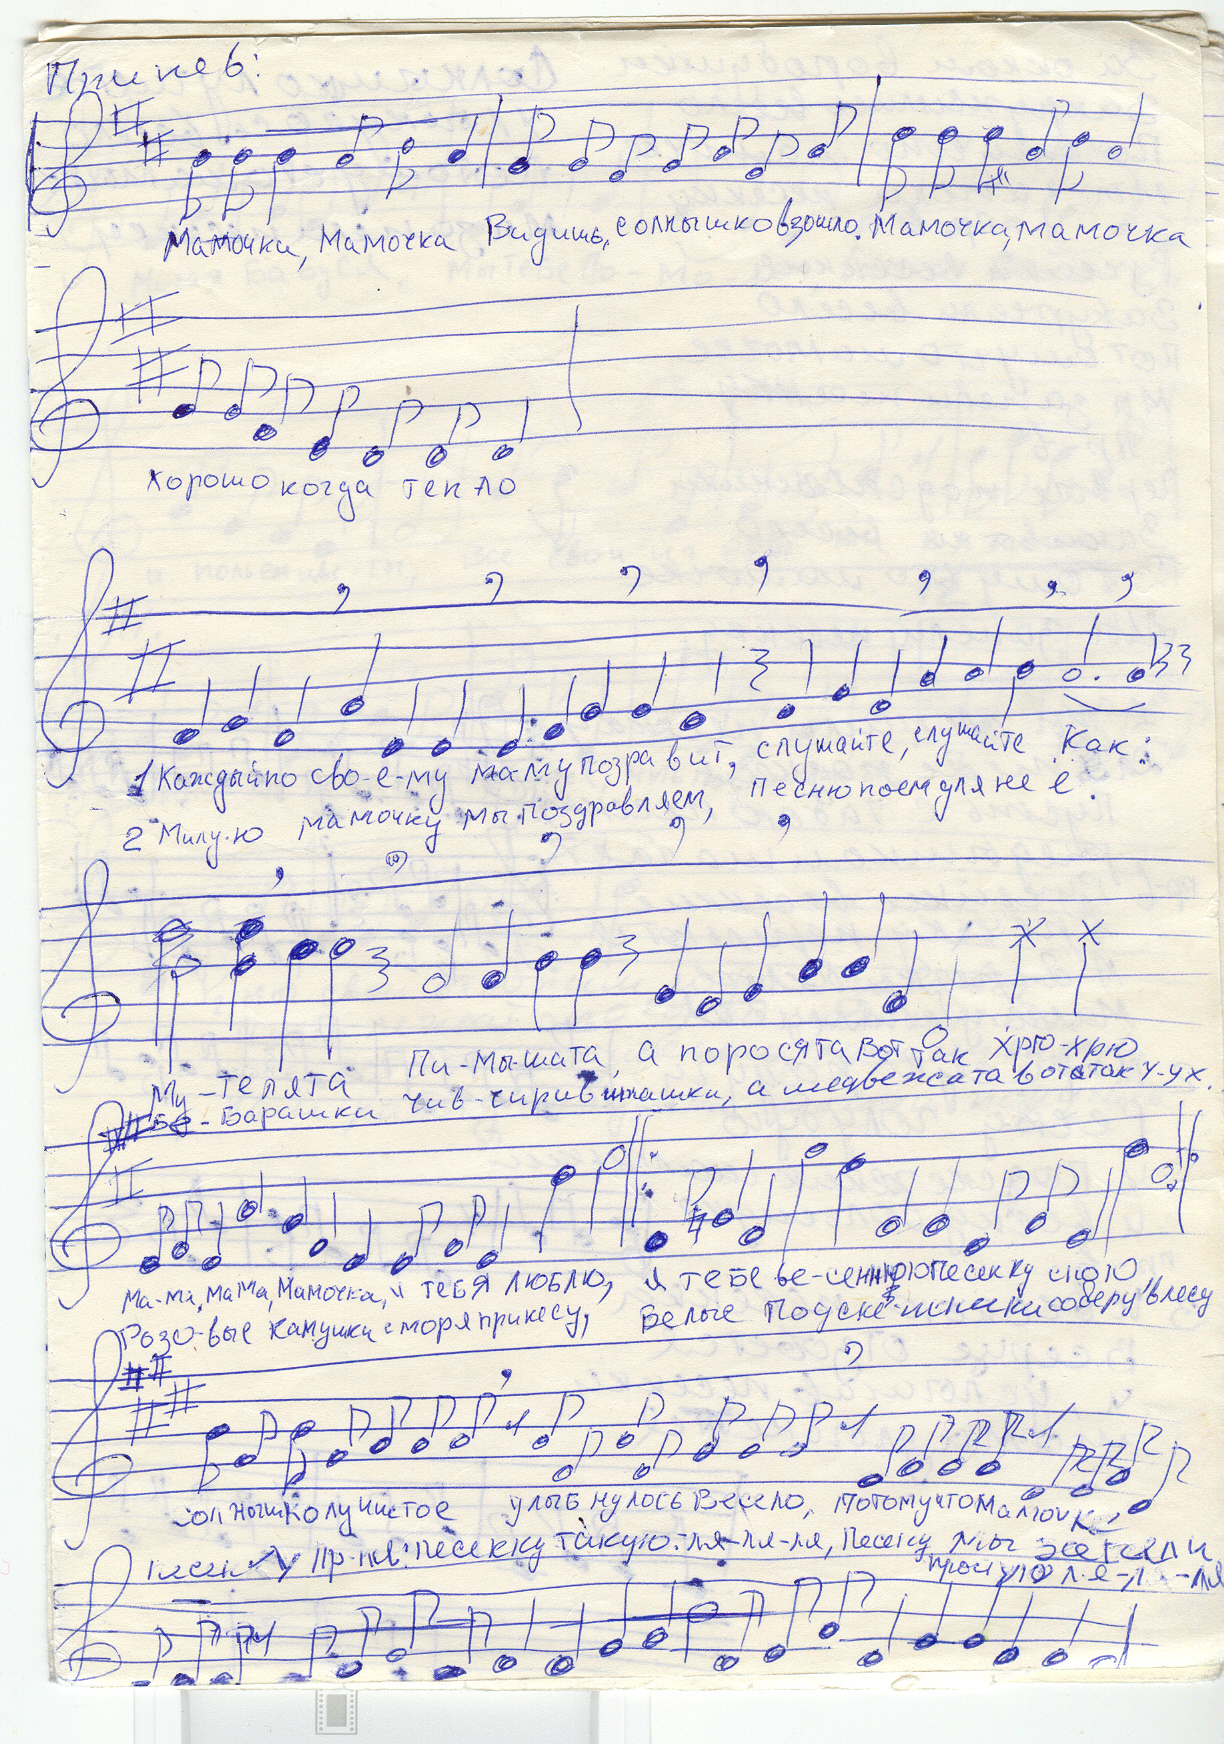 Припев:
Мамочка, Мамочка Видишь, солнышко взошло. Мамочка, мамочка
Хорошо когда тепло
1 Каждый по сво-е-му маму поздравит, слушайте, слушайте Как:
2 Милу-ю мамочку мы поздравляем, песню поем для неё.
Му-телята Пи-мышата, а поросята вот так хрю-хрю
Бе-Барашки чив-чирив пташки, а медвежата вот так у-ух.
Ма-ма, мама, Мамочка, я тебя люблю, я тебе ве-сеннюю песенку спою
Розо-вые камушки с моря принесу, Белые Подснежники соберу в лесу
Солнышко лучистое улыбнулось весело, потому что мамочке
песенку Пр-пев: песенку такую: ля-ля-ля, песенку мы
простую ля-л -ля